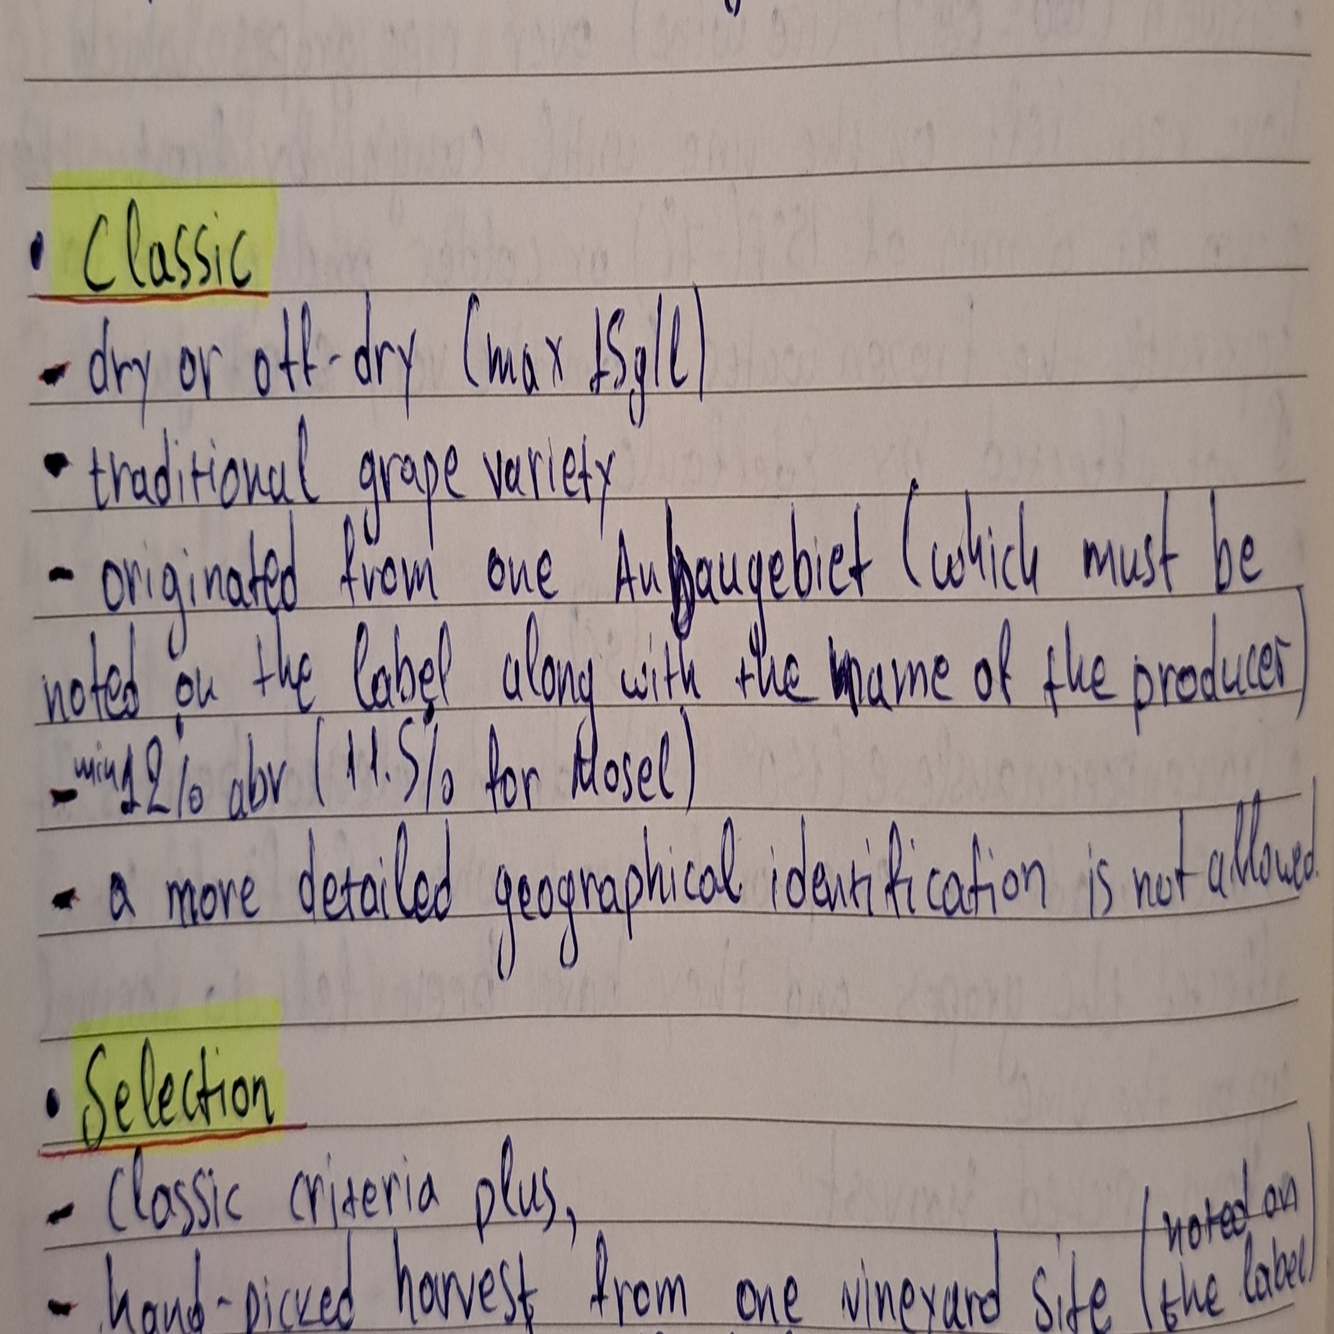 • Classic
- dry or off-dry (max 15g/l)
- traditional grape variety
- originated from one Anbaugebiet (which must be
noted on the label along with the name of the producer)
- min 12% abv (11.5% for Mosel)
- a more detailed geographical identification is not allowed.
• Selection
- Classic criteria plus,
- hand-picked harvest from one vineyard site (noted on
the label)